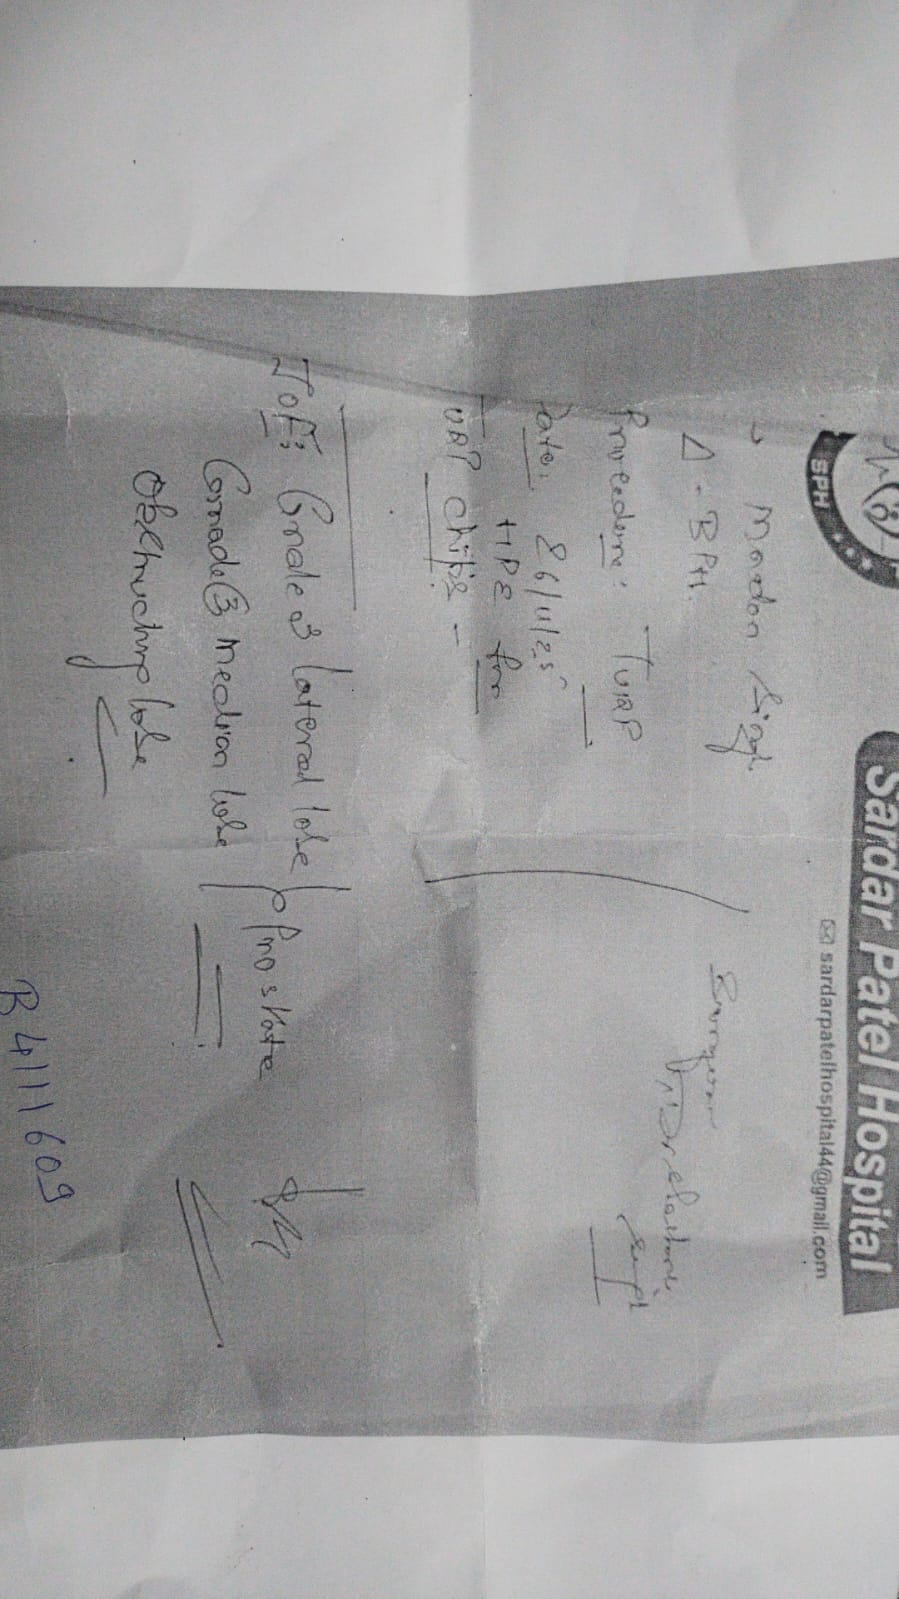 SPH
Sardar Patel Hospital
sardarpatelhospital44@gmail.com
Madan Singh
Δ - BPH.
Procedure: TURP
Date: 26/11/25
HPE for
TURP chips -
IOF: Grade 3 lateral lobe
Grade 3 median lobe
Prostate
Obstructing lobe
Surgeon
B4111609